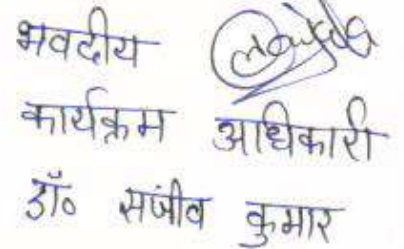 भवदीय
कार्यक्रम अधिकारी
डॉ० संजीव कुमार